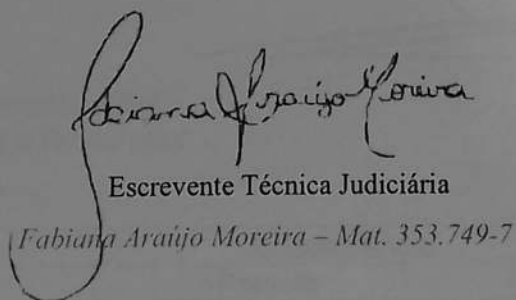 Fabiana Araújo Moreira
Escrevente Técnica Judiciária
Fabiana Araújo Moreira – Mat. 353.749-7